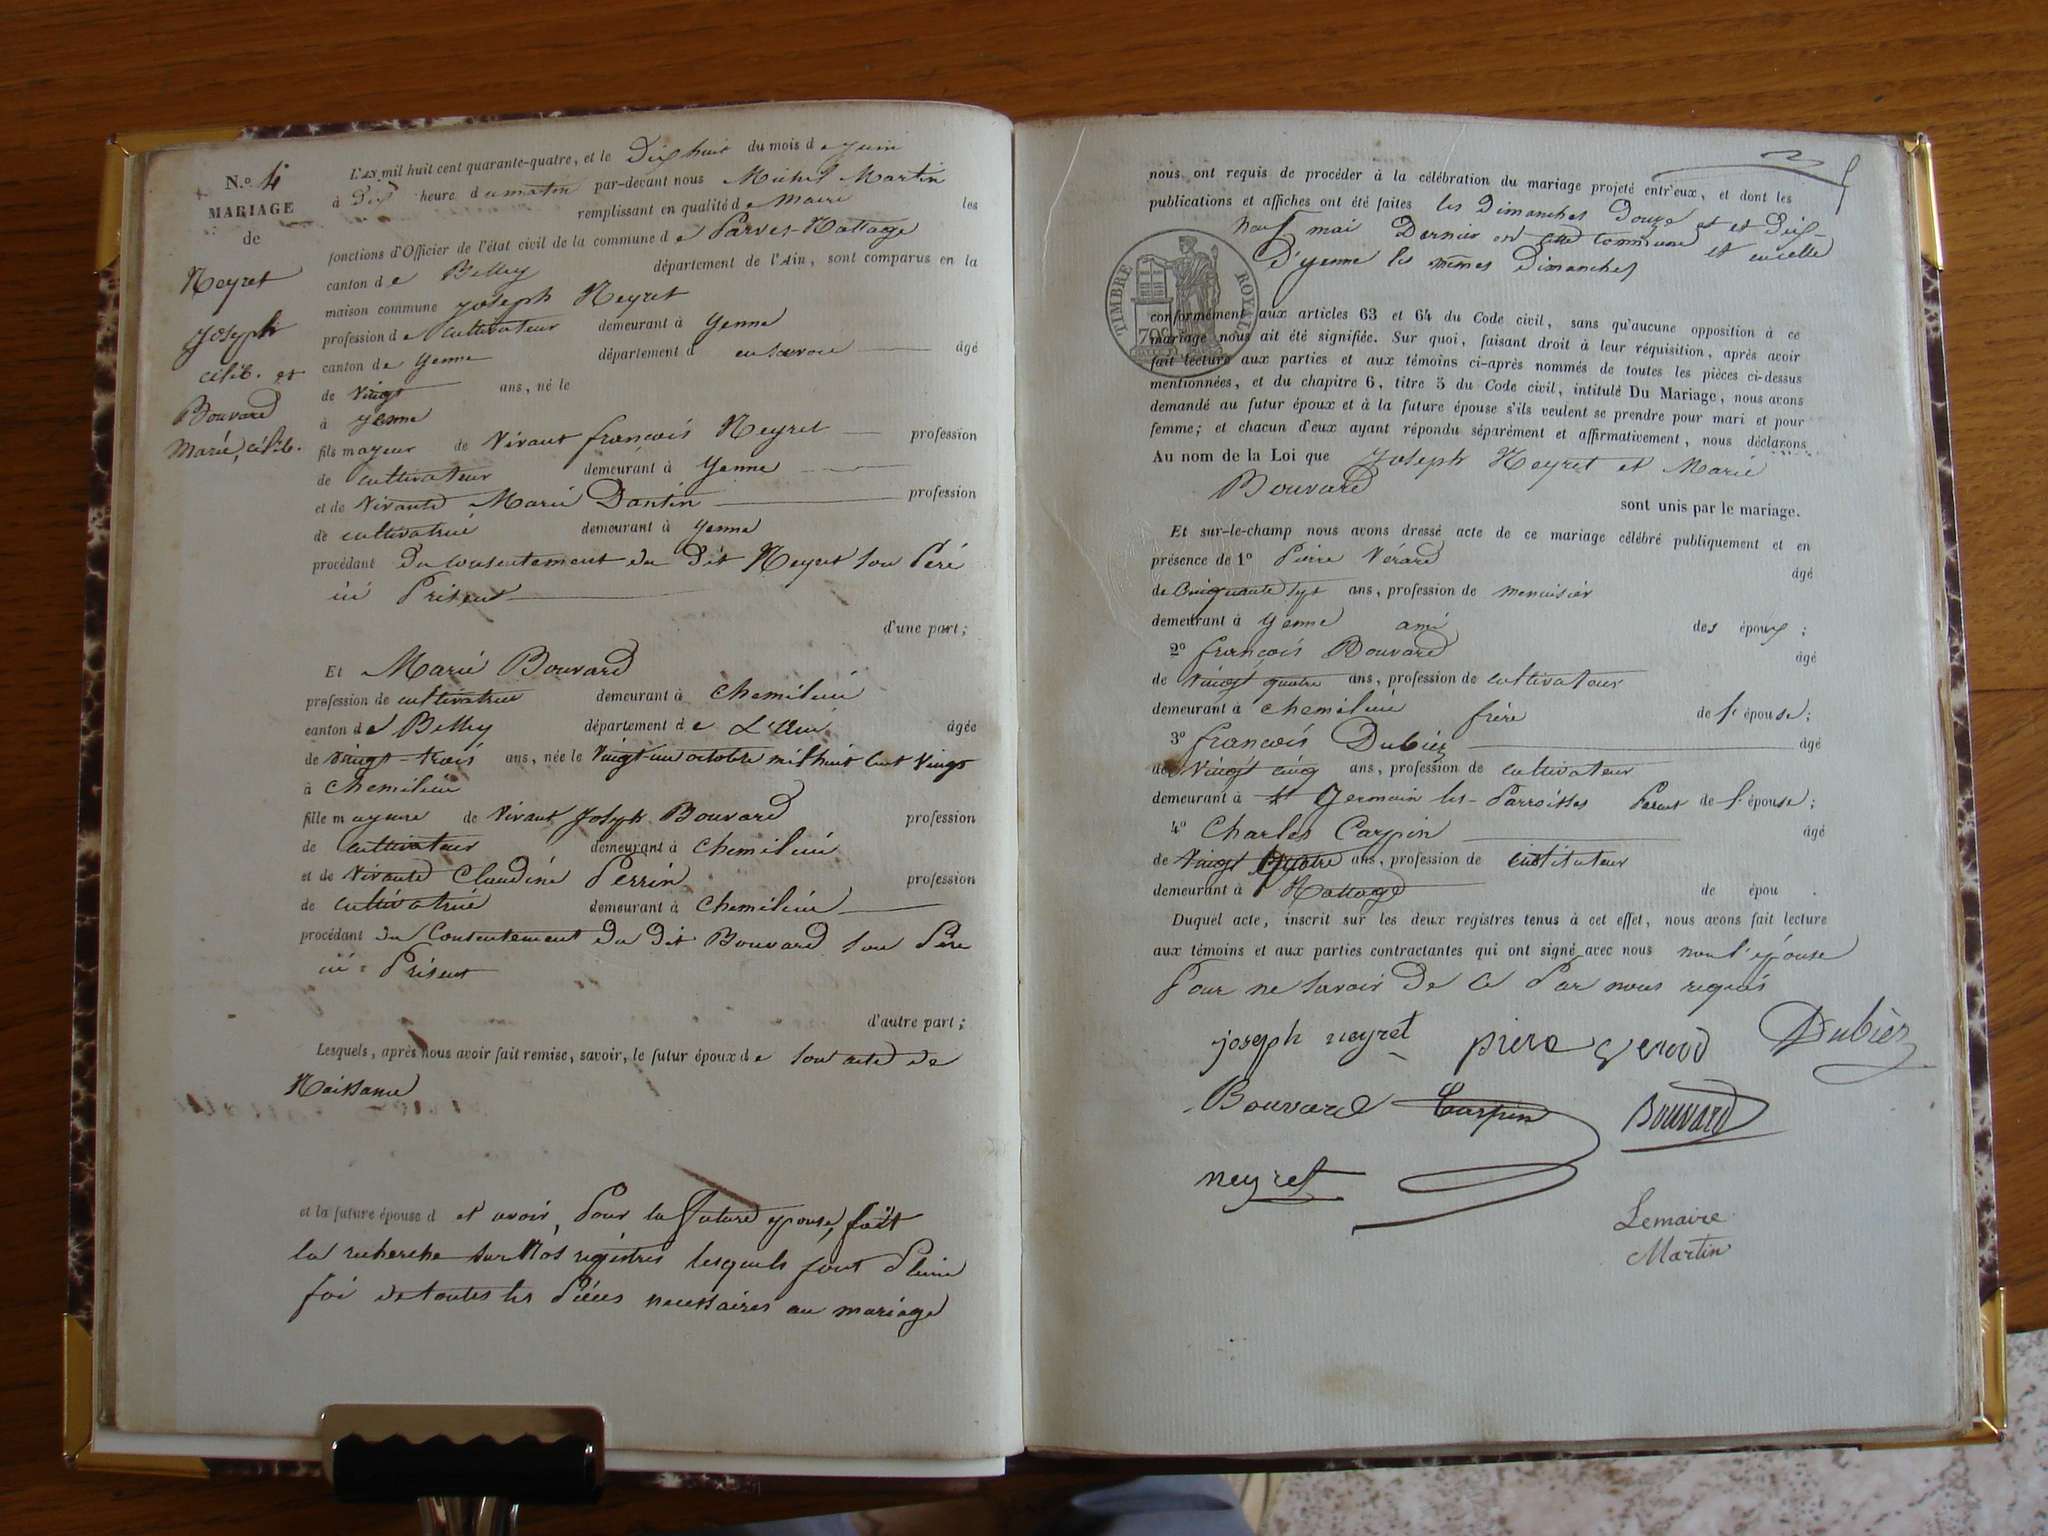 N.o 4
MARIAGE
de
Neyret
Joseph
célib. et
Bouvard
Marie, célib.
L'AN mil huit cent quarante-quatre, et le Dix huit du mois de juin
à Dix heure du matin par-devant nous Michel Martin
remplissant en qualité de Maire les
fonctions d'Officier de l'état civil de la commune de Parves-Nattage
canton de Belley département de l'Ain, sont comparus en la
maison commune Joseph Neyret
profession de cultivateur demeurant à Yenne
canton de Yenne département d en savoie âgé
de vingt ans, né le
à Yenne
fils mayeur de Vivant françois Neyret profession
de cultivateur demeurant à Yenne
et de Vivante Marie Dantin profession
de cultivatrice demeurant à Yenne
procédant Du consentement du Dit Neyret son Père
ici Présent
d'une part;
Et Marie Bouvard
profession de cultivatrice demeurant à Chemilieu
canton de Belley département de L'Ain âgée
de vingt-trois ans, née le vingt-un octobre mil huit cent vingt
à Chemilieu
fille mayeure de Vivant Joseph Bouvard profession
de cultivateur demeurant à Chemilieu
et de Vivante Claudine Perrin profession
de cultivatrice demeurant à Chemilieu
procédant du Consentement Du dit Bouvard son Père
ici Présent
d'autre part;
Lesquels, après nous avoir fait remise, savoir, le futur époux de son acte de
Naissance
et la future épouse d et avoir, Pour la future épouse, fait
la recherche sur Nos registres lesquels font Pleine
foi de toutes les Pièces necessaires au mariage
nous ont requis de procéder à la célébration du mariage projeté entr'eux, et dont les
publications et affiches ont été faites les Dimanches Douze et Dix-
Neuf mai Dernier en cette commune et en celle
D'yenne les mêmes Dimanches
TIMBRE ROYAL
70c
conformément aux articles 63 et 64 du Code civil, sans qu'aucune opposition à ce
mariage nous ait été signifiée. Sur quoi, faisant droit à leur réquisition, après avoir
fait lecture aux parties et aux témoins ci-après nommés de toutes les pièces ci-dessus
mentionnées, et du chapitre 6, titre 5 du Code civil, intitulé Du Mariage, nous avons
demandé au futur époux et à la future épouse s'ils veulent se prendre pour mari et pour
femme; et chacun d'eux ayant répondu séparément et affirmativement, nous déclarons
Au nom de la Loi que Joseph Neyret et Marie
Bouvard
sont unis par le mariage.
Et sur-le-champ nous avons dressé acte de ce mariage célébré publiquement et en
présence de 1o Pierre Vérard âgé
de Cinquante sept ans, profession de menuisier
demeurant à Yenne ami des époux;
2o françois Bouvard âgé
de vingt quatre ans, profession de cultivateur
demeurant à Chemilieu frère de l'épouse;
3o françois Dubiez âgé
de vingt cinq ans, profession de cultivateur
demeurant à St Germain les-Parroisses Parent de l'épouse;
4o Charles Carpin âgé
de vingt Quatre ans, profession de instituteur
demeurant à Nattage de épou .
Duquel acte, inscrit sur les deux registres tenus à cet effet, nous avons fait lecture
aux témoins et aux parties contractantes qui ont signé avec nous non l'épouse
Pour ne savoir De ce Par nous requis
joseph neyret piere verod Dubiez
Bouvard Carpin Bouvard
neyret
Lemaire
Martin